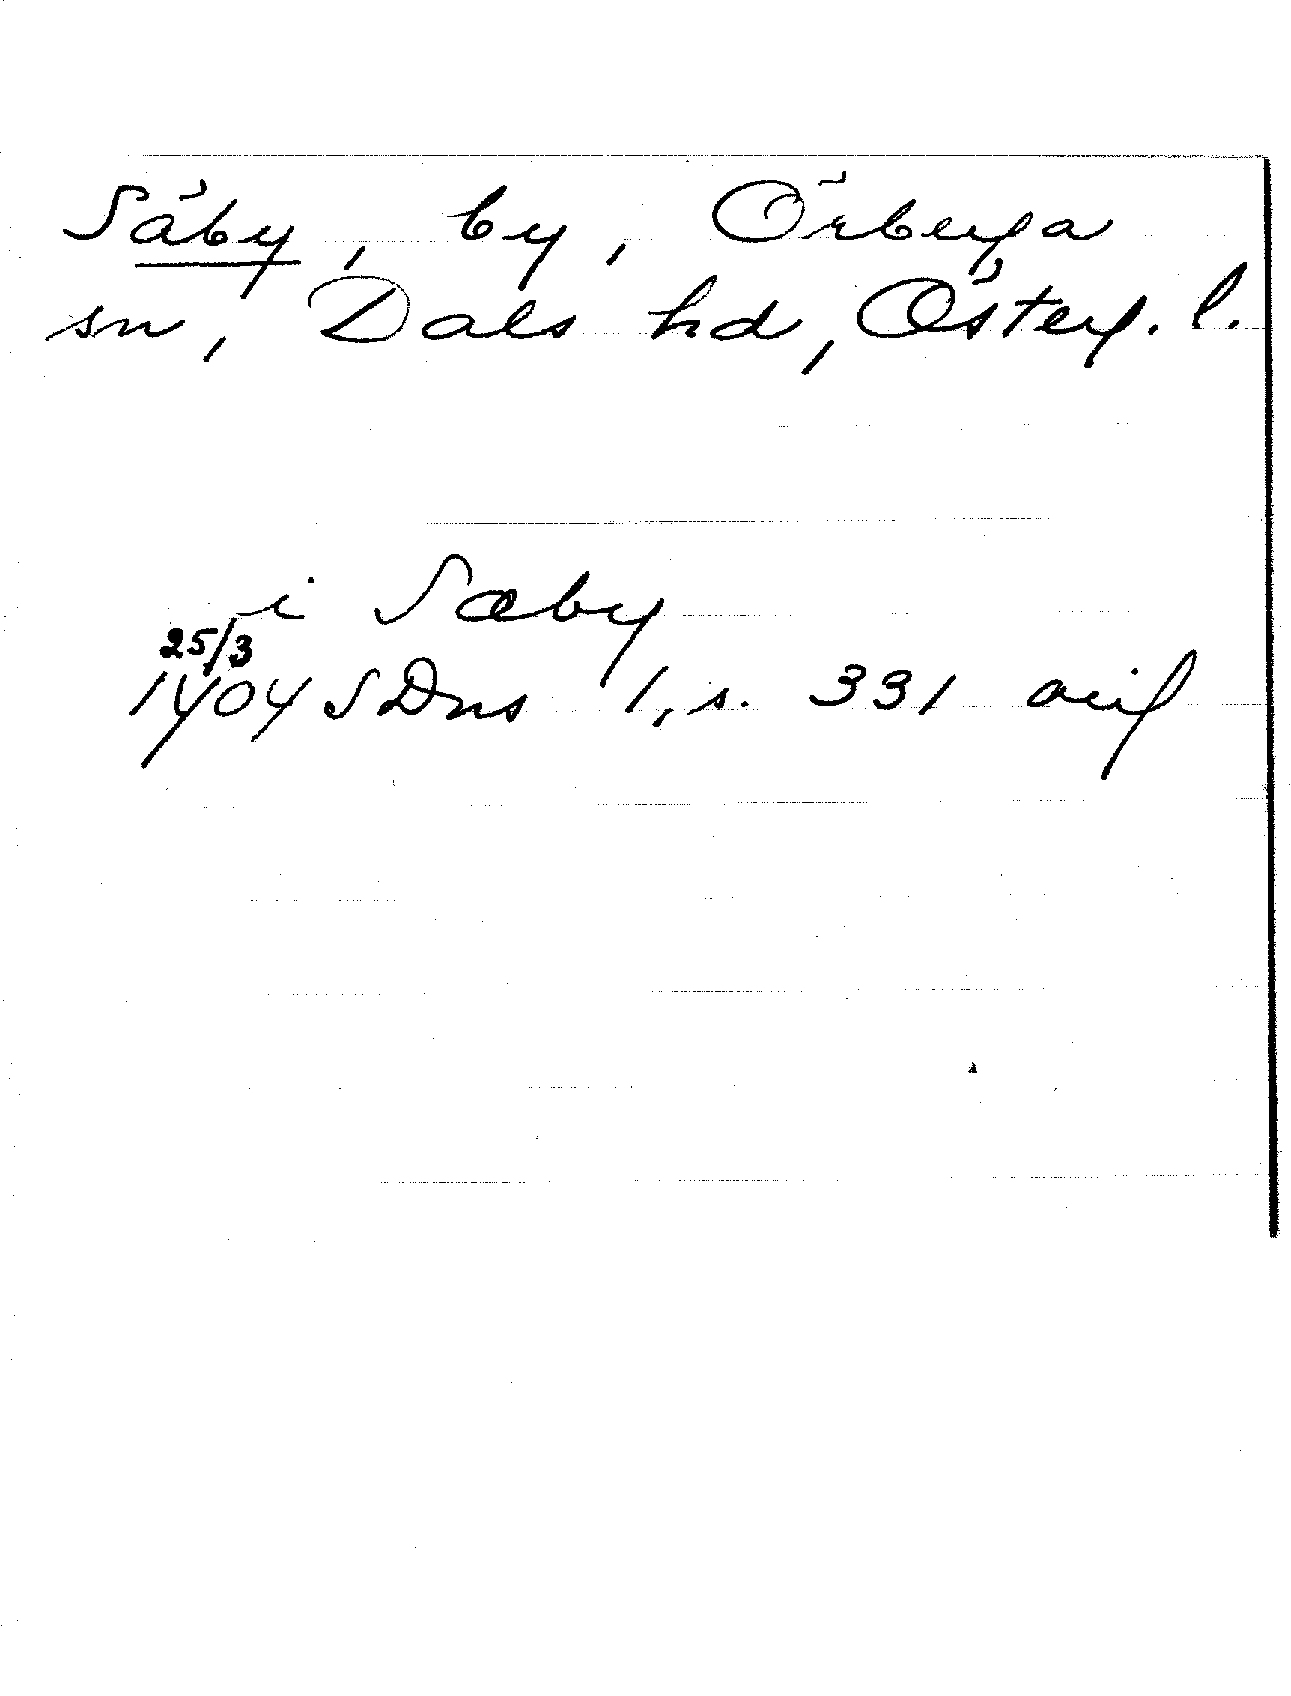 Säby, by, Örberga
sn, Dals hd, Österg. l.
i Sæby
25/3
1404 SDns 1, s. 331 avif